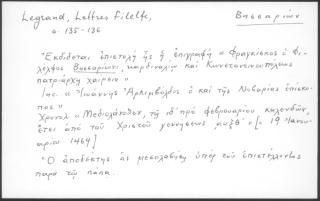 Legrand, Lettres Filelfe,
Βησσαρίων
σ. 135-136
"Εκδίδεται ἐπιστολή ἧς ἡ ἐπιγραφή "Φραγκίσκος ὁ Φι-
λέλφος Βησσαρίωνι, καρδινάλῃ καὶ Κωνσταντινουπόλεως
πατριάρχῃ χαίρειν"
Inc. "Ἰωάννης Ἀρκιμβόλδος ὁ καὶ τῆς Νουαρίας ἐπίσκο-
πος"
Χρονολ. "Μεδιολάνοθεν, τῇ ιδ' πρὸ φεβρουαρίου καλενδῶν,
ἔτει ἀπὸ τοῦ Χριστοῦ γεννήσεως αυξθ'" [= 19 Ἰανου-
αρίου 1469]
"Ὁ ἀποδέκτης ἂς μεσολαβήσῃ ὑπὲρ τοῦ ἐπιστέλλοντος
παρὰ τῷ πάπᾳ.